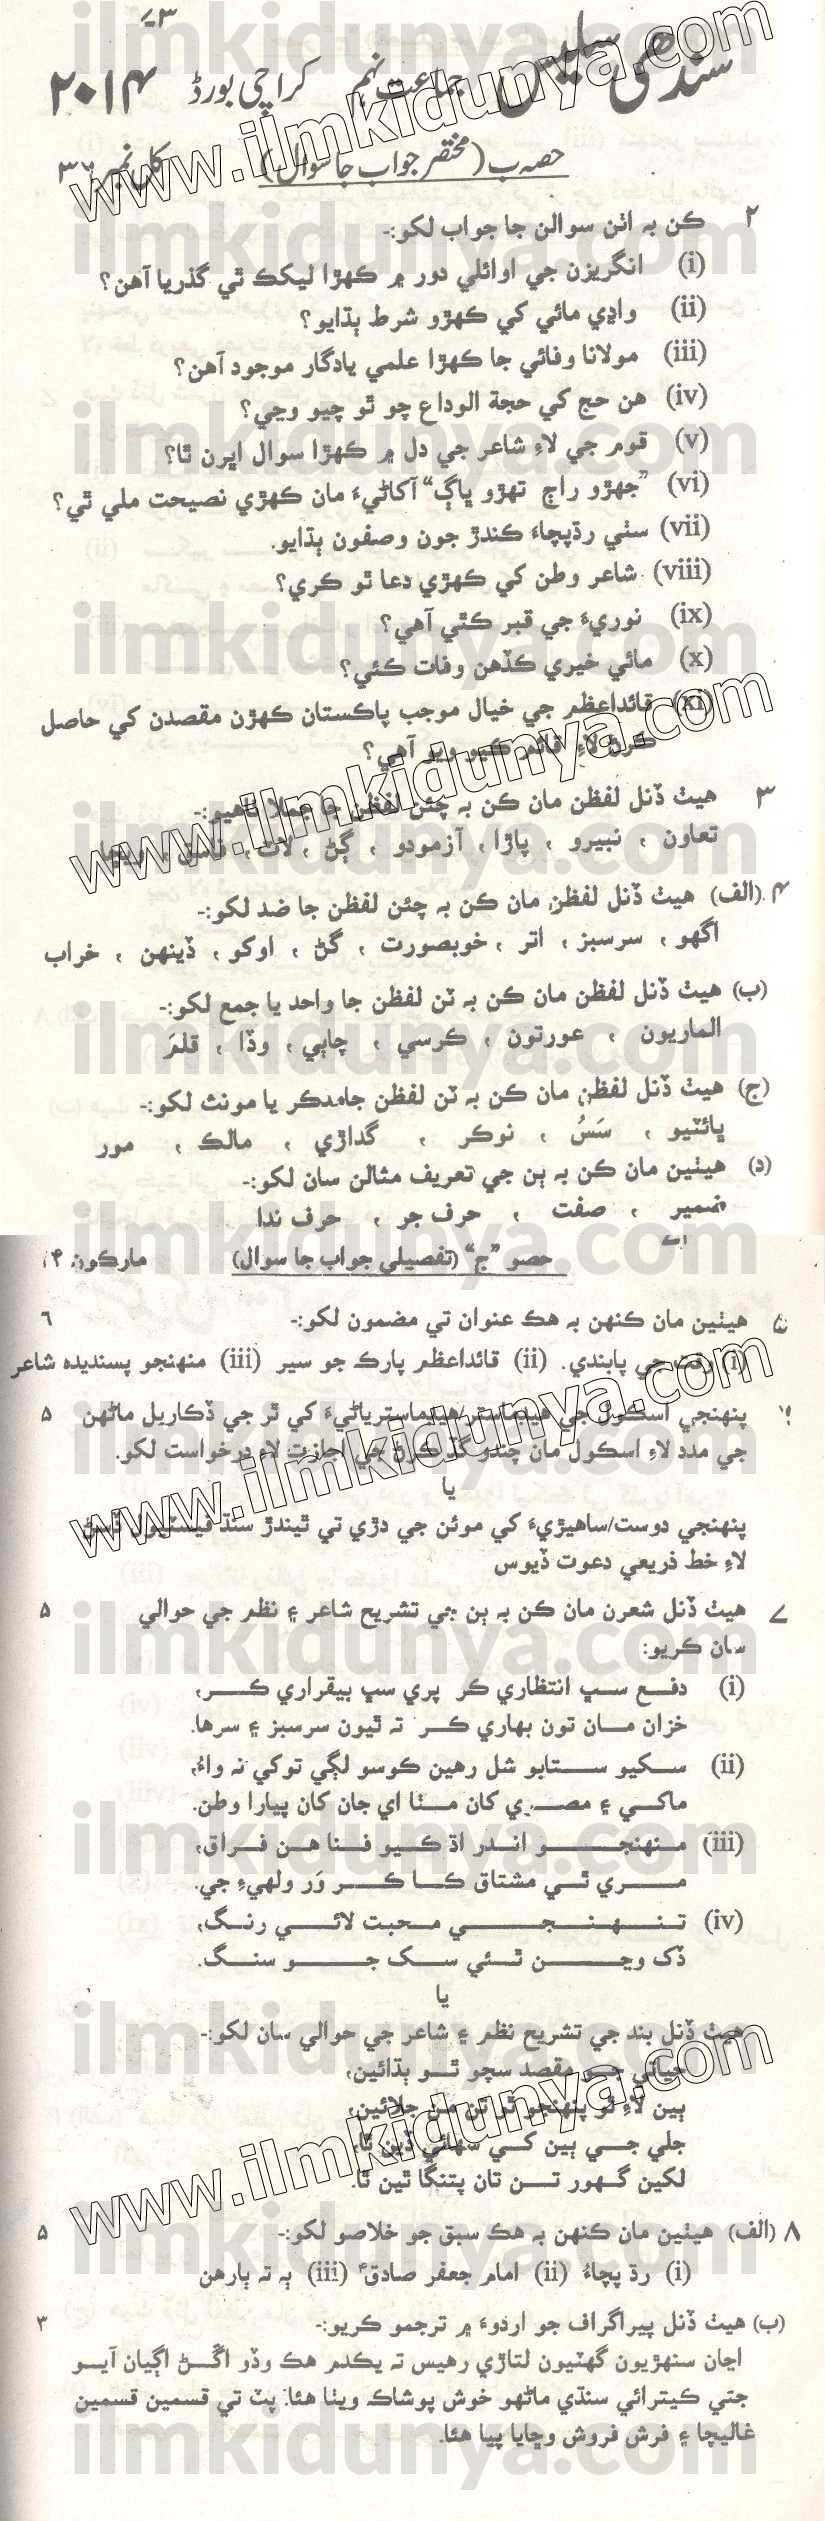 سندھی سلیس جماعت نہم کراچی بورڈ ۲۰۱۴
حصہ ب (مختصر جواب جا سوال) کل نمبر
۲ ڪن به اٺن سوالن جا جواب لکو:-
(i) انگريزن جي اوائلي دور ۾ ڪهڙا ليکڪ ٿي گذريا آهن؟
(ii) واڍي مائي کي ڪهڙو شرط ٻڌايو؟
(iii) مولانا وفائي جا ڪهڙا علمي يادگار موجود آهن؟
(iv) هن حج کي حجة الوداع ڇو ٿو چيو وڃي؟
(v) قوم جي لاءِ شاعر جي دل ۾ ڪهڙا سوال اڀرن ٿا؟
(vi) ”جهڙو راڄ تهڙو ڀاڳ“ آکاڻيءَ مان ڪهڙي نصيحت ملي ٿي؟
(vii) سٺي رڌپچاءَ ڪندڙ جون وصفون ٻڌايو.
(viii) شاعر وطن کي ڪهڙي دعا ٿو ڪري؟
(ix) نوريءَ جي قبر ڪٿي آهي؟
(x) مائي خيري ڪڏهن وفات ڪئي؟
(xi) قائداعظم جي خيال موجب پاڪستان ڪهڙن مقصدن کي حاصل
ڪرڻ لاءِ قائم ڪيو ويو آهي؟
۳ هيٺ ڏنل لفظن مان ڪن به چئن لفظن جا جملا ٺاهيو:-
تعاون ، نبيرو ، پاڙا ، آزمودو ، ڳڻ ، لاٽ ،
۴ (الف) هيٺ ڏنل لفظن مان ڪن به چئن لفظن جا ضد لکو:-
اگهو ، سرسبز ، اتر ، خوبصورت ، گڻ ، اوکو ، ڏينهن ، خراب
(ب) هيٺ ڏنل لفظن مان ڪن به ٽن لفظن جا واحد يا جمع لکو:-
الماريون ، عورتون ، ڪرسي ، چاٻي ، وڏا ، قلمَ
(ج) هيٺ ڏنل لفظن مان ڪن به ٽن لفظن جا مذڪر يا مونث لکو:-
ڀائٽيو ، سَسُ ، نوڪر ، گداڙي ، مالڪ ، مور
(د) هيٺين مان ڪن به ٻن جي تعريف مثالن سان لکو:-
ضمير ، صفت ، حرف جر ، حرف ندا
حصو ”ج“ (تفصيلي جواب جا سوال) مارڪون
۵ هيٺين مان ڪنهن به هڪ عنوان تي مضمون لکو:- ٦
(i) وقت جي پابندي. (ii) قائداعظم پارڪ جو سير (iii) منهنجو پسنديده شاعر
پنهنجي اسڪول جي هيڊماستر/هيڊماسترياڻيءَ کي ٿر جي ڏڪاريل ماڻهن ۵
جي مدد لاءِ اسڪول مان چندو گڏ ڪرڻ جي اجازت لاءِ درخواست لکو.
يا
پنهنجي دوست/ساهيڙيءَ کي موئن جي دڙي تي ٿيندڙ سنڌ فيسٽيول ڏسڻ
لاءِ خط ذريعي دعوت ڏيوس
۷ هيٺ ڏنل شعرن مان ڪن به ٻن جي تشريح شاعر ۽ نظم جي حوالي ۵
سان ڪريو:
(i) دفع سڀ انتظاري ڪر پري سڀ بيقراري ڪر،
خزان مان تون بهاري ڪر ته ٿيون سرسبز ۽ سرها.
(ii) سکيو ستابو شل رهين ڪوسو لڳي توکي نه واءُ،
ماکي ۽ مصري کان مٺا اي جان کان پيارا وطن.
(iii) منهنجو اندر اڌ ڪيو فنا هن فراق،
مري ٿي مشتاق ڪا ڪر وَر ولهيءِ جي.
(iv) تنهنجي محبت لائي رنگ،
ڏک وڃن ٿئي سک جو سنگ.
يا
هيٺ ڏنل بند جي تشريح نظم ۽ شاعر جي حوالي سان لکو:-
حياتي جو مقصد سچو ٿو ٻڌائين،
ٻين لاءِ ٿو پنهنجو تو تن من جلائين،
جلي جي ٻين کي سهائي ڏين ٿا،
لکين گهور تن تان پتنگا ٿين ٿا.
۸ (الف) هيٺين مان ڪنهن به هڪ سبق جو خلاصو لکو:- ۵
(i) رڌ پچاءُ (ii) امام جعفر صادق (iii) ٻه ته ٻارهن
(ب) هيٺ ڏنل پيراگراف جو اردوءَ ۾ ترجمو ڪريو:- ۳
اڃان سنهڙيون گهٽيون لتاڙي رهيس ته يڪدم هڪ وڏو اڱڻ اڳيان آيو
جتي ڪيترائي سنڌي ماڻهو خوش پوشاڪ ويٺا هئا. پٽ تي قسمين قسمين
غاليچا ۽ فرش فروش وڇايا پيا هئا.
www.ilmkidunya.com
ilmkidunya.com